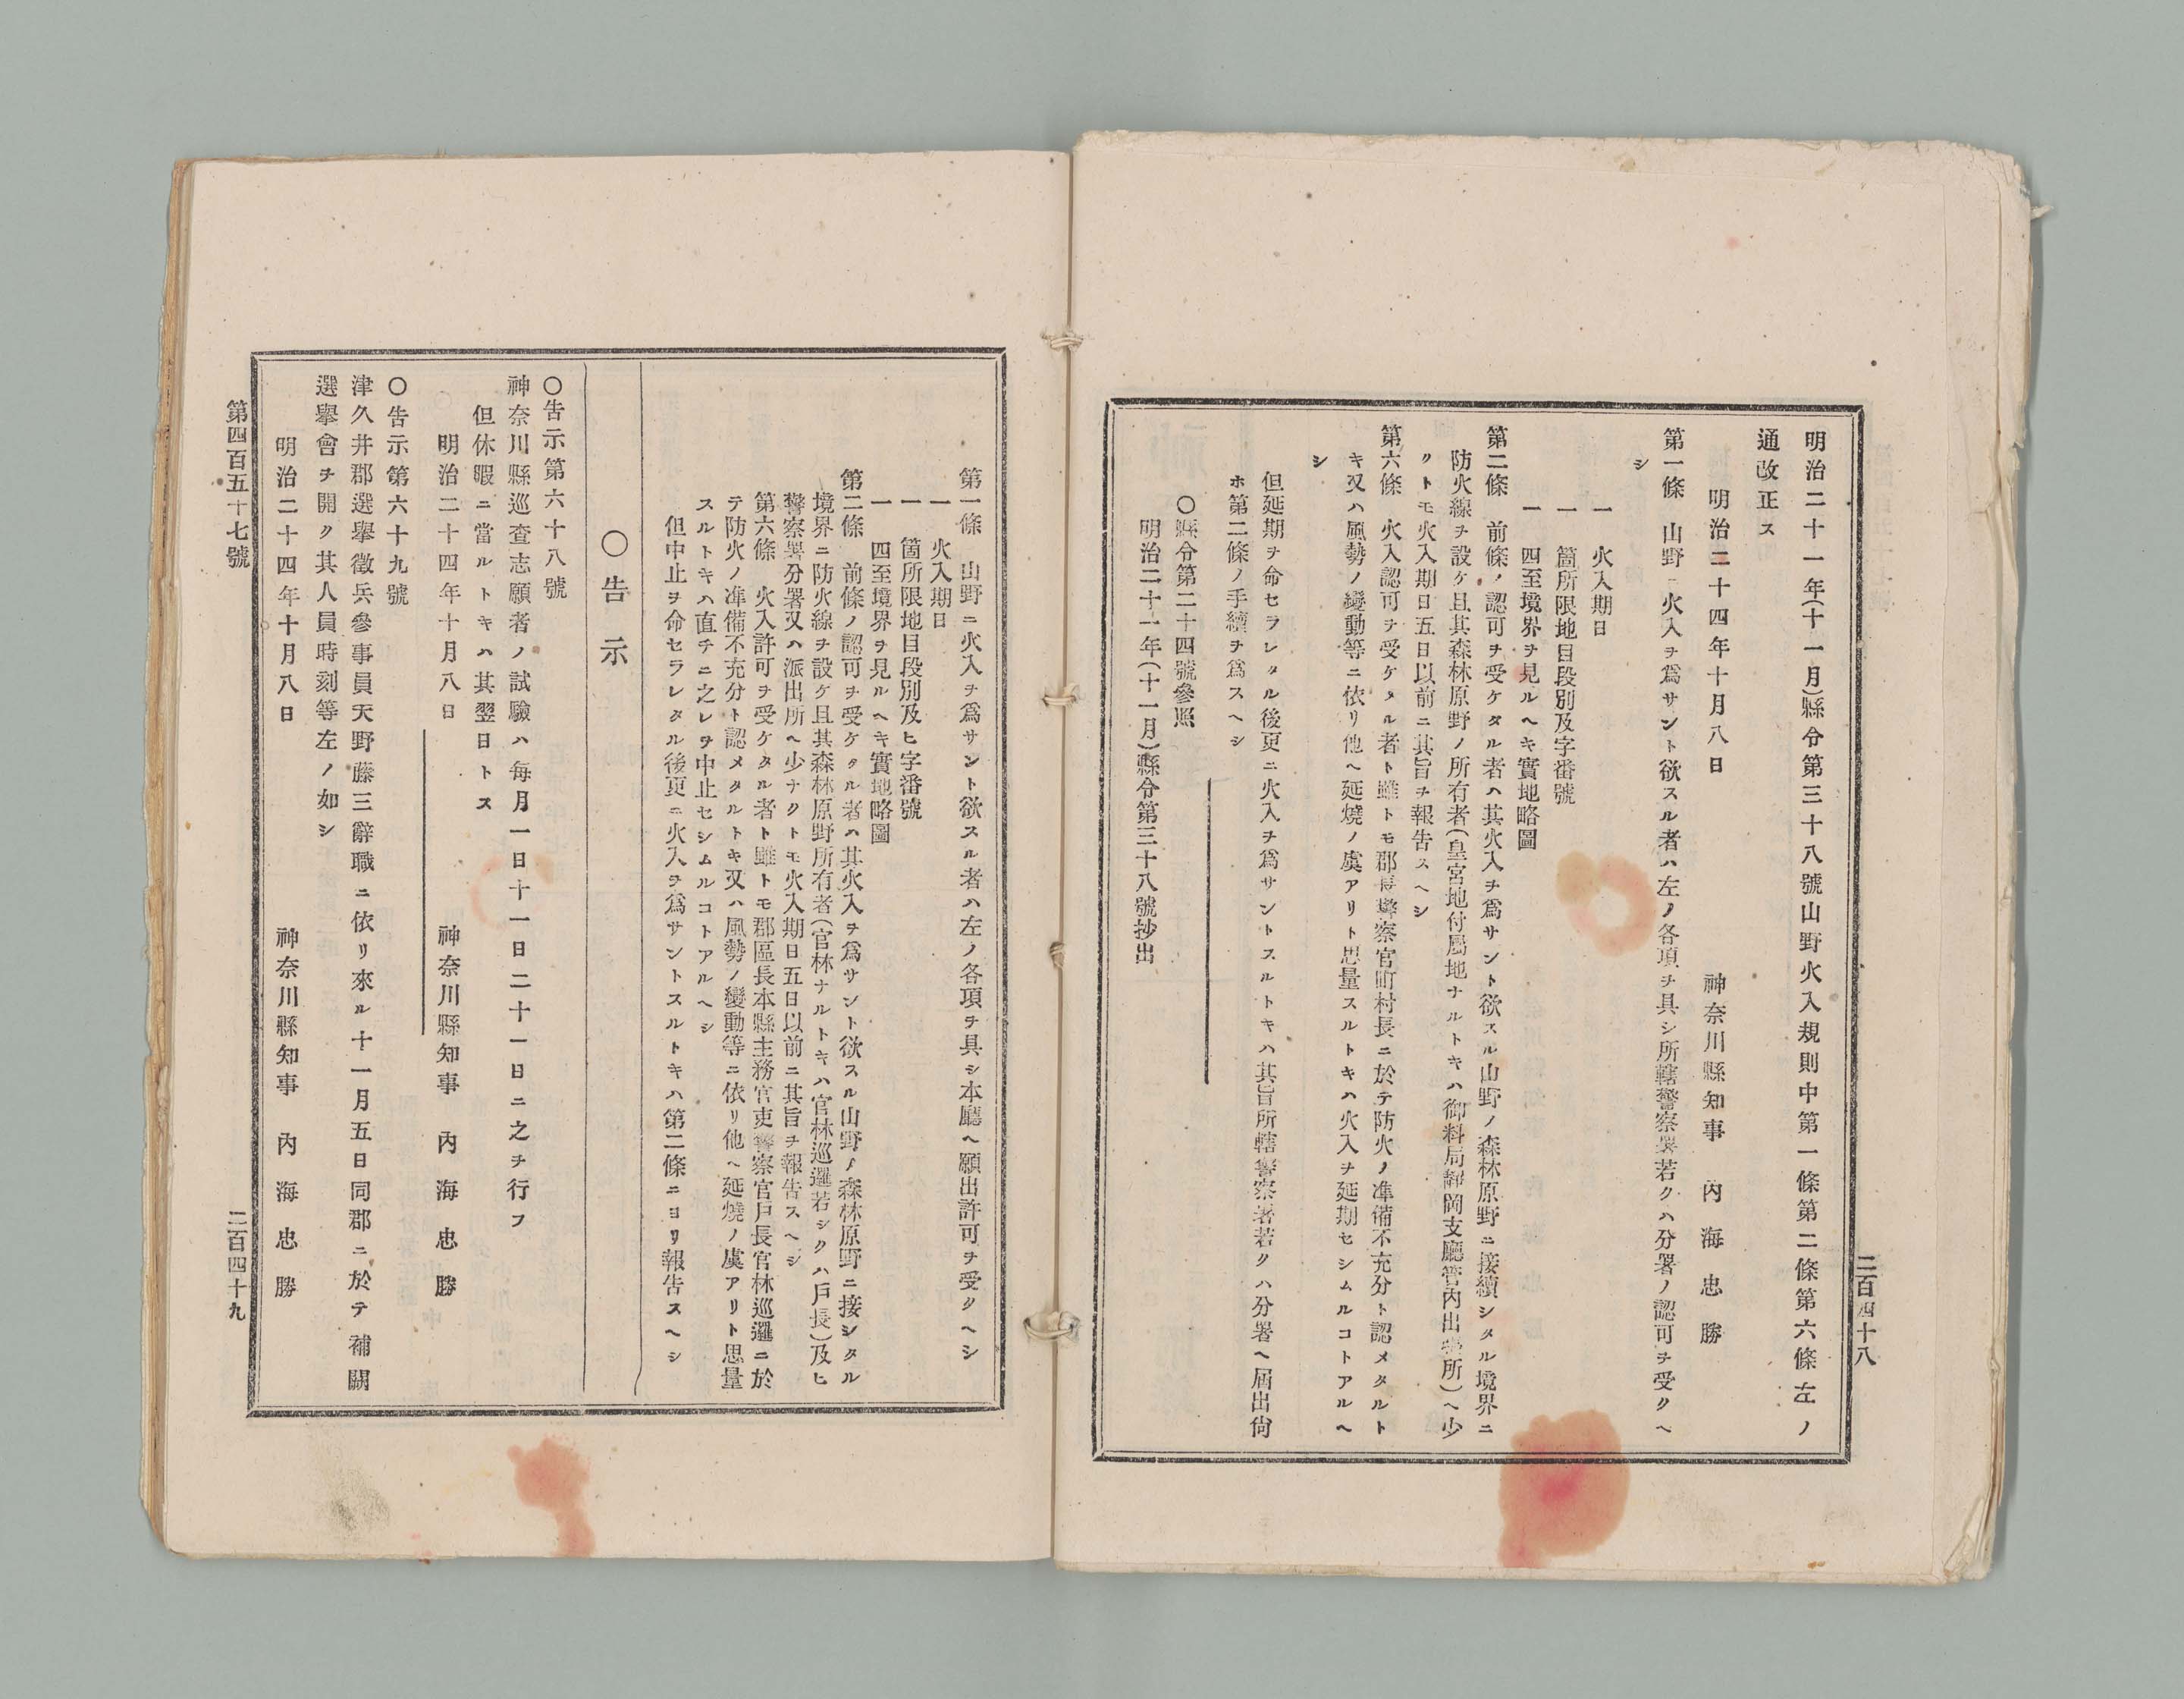 二百四十八
明治二十一年(十一月)縣令第三十八號山野火入規則中第一條第二條第六條左ノ
通改正ス
明治二十四年十月八日
神奈川縣知事 內海忠勝
第一條 山野ニ火入ヲ爲サント欲スル者ハ左ノ各項ヲ具シ所轄警察署若クハ分署ノ認可ヲ受クヘ
シ
一 火入期日
一 箇所限地目段別及字番號
一 四至境界ヲ見ルヘキ實地略圖
第二條 前條ノ認可ヲ受ケタル者ハ其火入ヲ爲サント欲スル山野ノ森林原野ニ接續シタル境界ニ
防火線ヲ設ケ且其森林原野ノ所有者(皇宮地付屬地ナルトキハ御料局靜岡支廳管內出張所)ヘ少
クトモ火入期日五日以前ニ其旨ヲ報告スヘシ
第六條 火入認可ヲ受ケタル者ト雖トモ郡長警察官町村長ニ於テ防火ノ準備不充分ト認メタルト
キ又ハ風勢ノ變動等ニ依リ他ヘ延燒ノ虞アリト思量スルトキハ火入ヲ延期セシムルコトアルヘ
シ
但延期ヲ命セラレタル後更ニ火入ヲ爲サントスルトキハ其旨所轄警察署若クハ分署ヘ屆出尙
ホ第二條ノ手續ヲ爲スヘシ
○縣令第二十四號參照
明治二十一年(十一月)縣令第三十八號抄出
第一條 山野ニ火入ヲ爲サント欲スル者ハ左ノ各項ヲ具シ本廳ヘ願出許可ヲ受クヘシ
一 火入期日
一 箇所限地目段別及ヒ字番號
一 四至境界ヲ見ルヘキ實地略圖
第二條 前條ノ認可ヲ受ケタル者ハ其火入ヲ爲サント欲スル山野ノ森林原野ニ接シタル
境界ニ防火線ヲ設ケ且其森林原野所有者(官林ナルトキハ官林巡邏若シクハ戶長)及ヒ
警察署分署又ハ派出所ヘ少ナクトモ火入期日五日以前ニ其旨ヲ報告スヘシ
第六條 火入許可ヲ受ケタル者ト雖トモ郡區長本縣主務官吏警察官戶長官林巡邏ニ於
テ防火ノ準備不充分ト認メタルトキ又ハ風勢ノ變動等ニ依リ他ヘ延燒ノ虞アリト思量
スルトキハ直チニ之レヲ中止セシムルコトアルヘシ
但中止ヲ命セラレタル後更ニ火入ヲ爲サントスルトキハ第二條ニヨリ報告スヘシ
○告示
○告示第六十八號
神奈川縣巡査志願者ノ試驗ハ每月一日十一日二十一日ニ之ヲ行フ
但休暇ニ當ルトキハ其翌日トス
明治二十四年十月八日
神奈川縣知事 內海忠勝
○告示第六十九號
津久井郡選擧徵兵參事員天野藤三辭職ニ依リ來ル十一月五日同郡ニ於テ補闕
選擧會ヲ開ク其人員時刻等左ノ如シ
明治二十四年十月八日
神奈川縣知事 內海忠勝
第四百五十七號
二百四十九